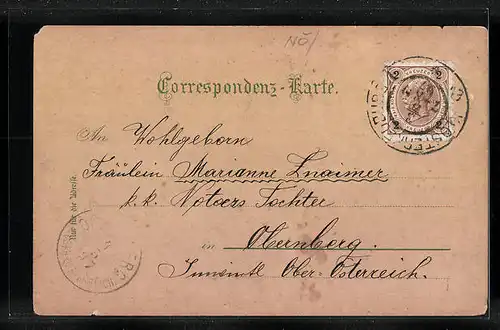 NÖ/
Correspondenz-Karte.
An Wohlgeborn
Fräulein Marianne Znaimer
k. k. Notars Tochter
in Obernberg
Innviertl Ober-Österreich.
Nur für die Adresse.